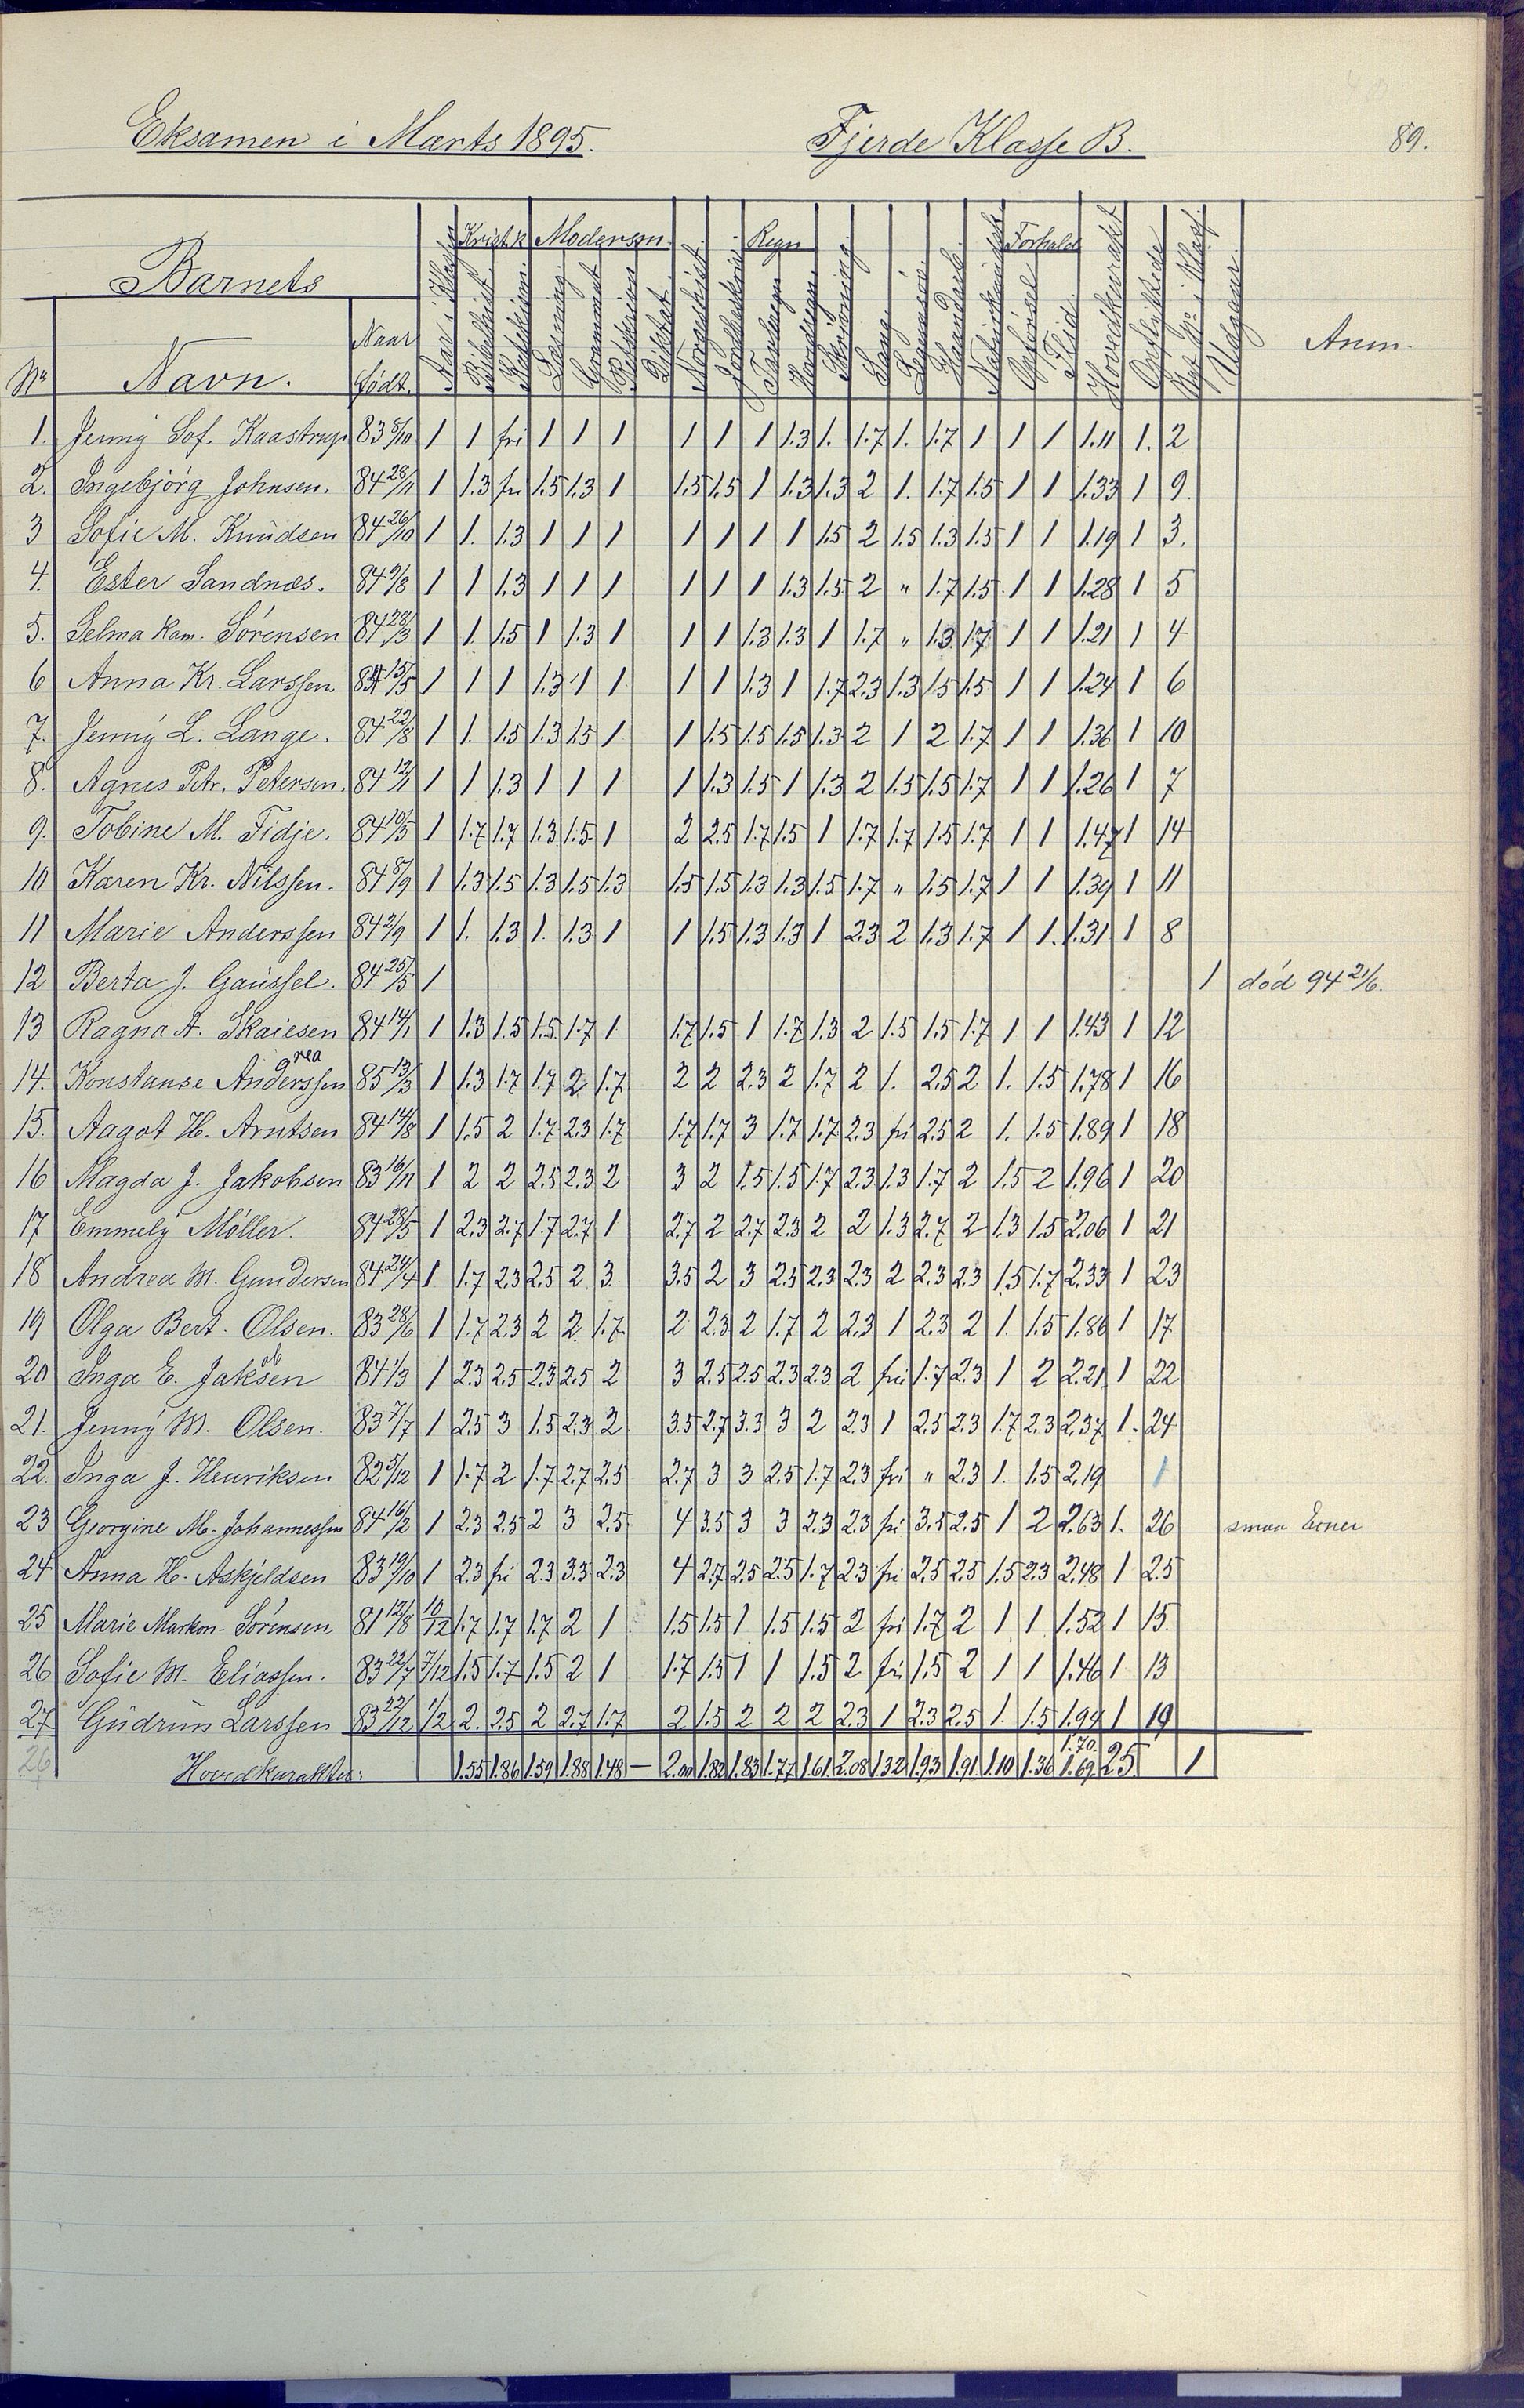 Eksamen i Marts 1895. Fjerde Klasse B. 89.
Krist.k. Modersm. Regn Forhold
Barnets
No Navn. Naar født. Aar i Klas. Bibelhist. Katekism. Læsning Grammat. Diktat Norgeshist. Tavleregn Hovedregn Skrivning Sang Haandarb. Opførsel Flid Hovedkarakt. Opflyttede Anm.
1. Jenny Sof. Kaastrup 83 8/10 1 1 fri 1 1 1 1 1 1 1.3 1. 1.7 1. 1.7 1 1 1 1.11 1. 2
2. Ingebjörg Johnsen. 84 28/11 1 1.3 fri 1.5 1.3 1 1.5 1.5 1 1.3 1.3 2 1. 1.7 1.5 1 1 1.33 1 9.
3 Sofie M. Knudsen 84 26/10 1 1. 1.3 1 1 1 1 1 1 1 1.5 2 1.5 1.3 1.5 1 1 1.19 1 3.
4. Ester Sandnæs. 84 9/8 1 1 1.3 1 1 1 1 1 1 1.3 1.5 2 " 1.7 1.5 1 1 1.28 1 5
5. Selma Kam. Sörensen 84 28/3 1 1. 1.5 1 1.3 1 1 1 1.3 1.3 1 1.7 " 1.3 1.7 1 1 1.21 1 4
6 Anna Kr. Larssen 84 15/5 1 1 1 1.3 1 1 1 1 1.3 1 1.7 2.3 1.3 1.5 1.5 1 1 1.24 1 6
7. Jenny L. Lange. 84 22/8 1 1. 1.5 1.3 1.5 1 1 1.5 1.5 1.5 1.3 2 1 2 1.7 1 1 1.36 1 10
8. Agnes Petr. Petersen. 84 12/1 1 1 1.3 1 1 1 1 1.3 1.5 1 1.3 2 1.5 1.5 1.7 1 1 1.26 1 7
9. Tobine M. Fidje. 84 10/5 1 1.7 1.7 1.3 1.5 1 2 2.5 1.7 1.5 1 1.7 1.7 1.5 1.7 1 1 1.47 1 14
10 Karen Kr. Nilssen. 84 8/9 1 1.3 1.5 1.3 1.5 1.3 1.5 1.5 1.3 1.3 1.5 1.7 " 1.5 1.7 1 1 1.39 1 11
11 Marie Anderssen 84 2/9 1 1. 1.3 1. 1.3 1 1 1.5 1.3 1.3 1 2.3 2 1.3 1.7 1 1. 1.31 1 8
12 Berta J. Gaussel. 84 25/5 1 1 död 94 21/6.
13 Ragna A. Skaiesen 84 14/1 1 1.3 1.5 1.5 1.7 1 1.7 1.5 1 1.7 1.3 2 1.5 1.5 1.7 1 1 1.43 1 12
rea
14. Konstanse Anderssen 85 13/3 1 1.3 1.7 1.7 2 1.7 2 2 2.3 2 1.7 2 1. 2.5 2 1. 1.5 1.78 1 16
15. Aagot H. Arntsen 84 14/8 1 1.5 2 1.7 2.3 1.7 1.7 1.7 3 1.7 1.7 2.3 fri 2.5 2 1. 1.5 1.89 1 18
16 Magda J. Jakobsen 83 16/11 1 2 2 2.5 2.3 2 3 2 1.5 1.5 1.7 2.3 1.3 1.7 2 1.5 2 1.96 1 20
17 Emmely Möller. 84 28/5 1 2.3 2.7 1.7 2.7 1 2.7 2 2.7 2.3 2 2 1.3 2.7 2 1.3 1.5 2.06 1 21
18 Andrea M. Gundersen 84 24/4 1 1.7 2.3 2.5 2 3 3.5 2 3 2.5 2.3 2.3 2 2.3 2.3 1.5 1.7 2.33 1 23
19 Olga Bert. Olsen. 83 28/6 1 1.7 2.3 2 2 1.7 2 2.3 2 1.7 2 2.3 1 2.3 2 1. 1.5 1.86 1 17
ob
20 Inga E. Jaksen 84 1/3 1 2.3 2.5 2.3 2.5 2 3 2.5 2.5 2.3 2.3 2 fri 1.7 2.3 1 2 2.21 1 22
21. Jenny M. Olsen. 83 7/7 1 2.5 3 1.5 2.3 2 3.5 2.7 3.3 3 2 2.3 1 2.5 2.3 1.7 2.3 2.37 1. 24
22. Inga J. Henriksen 82 5/12 1 1.7 2 1.7 2.7 2.5 2.7 3 3 2.5 1.7 2.3 fri " 2.3 1. 1.5 2.19 1
23 Georgine M. Johannessen 84 16/2 1 2.3 2.5 2 3 2.5 4 3.5 3 3 2.3 2.3 fri 3.5 2.5 1 2 2.63 1. 26 smaa Evner
24 Anna H. Askjeldsen 83 19/10 1 2.3 fri 2.3 3.3 2.3 4 2.7 2.5 2.5 1.7 2.3 fri 2.5 2.5 1.5 2.3 2.48 1 25
25 Marie Markon. Sörensen 81 12/8 10/12 1.7 1.7 1.7 2 1 1.5 1.5 1 1.5 1.5 2 fri 1.7 2 1 1 1.52 1 15.
26 Sofie M. Eliassen. 83 22/7 7/12 1.5 1.7 1.5 2 1 1.7 1.3 1 1 1.5 2 fri 1.5 2 1 1 1.46 1 13
27 Gudrun Larssen 83 22/12 1/2 2. 2.5 2 2.7 1.7 2 1.5 2 2 2 2.3 1 2.3 2.5 1. 1.5 1.94 1 19
1.70
26 Hovedkarakter: 1.55 1.86 1.59 1.88 1.48 — 2.00 1.82 1.83 1.77 1.61 2.08 1.32 1.93 1.91 1.10 1.36 1.69 25 1